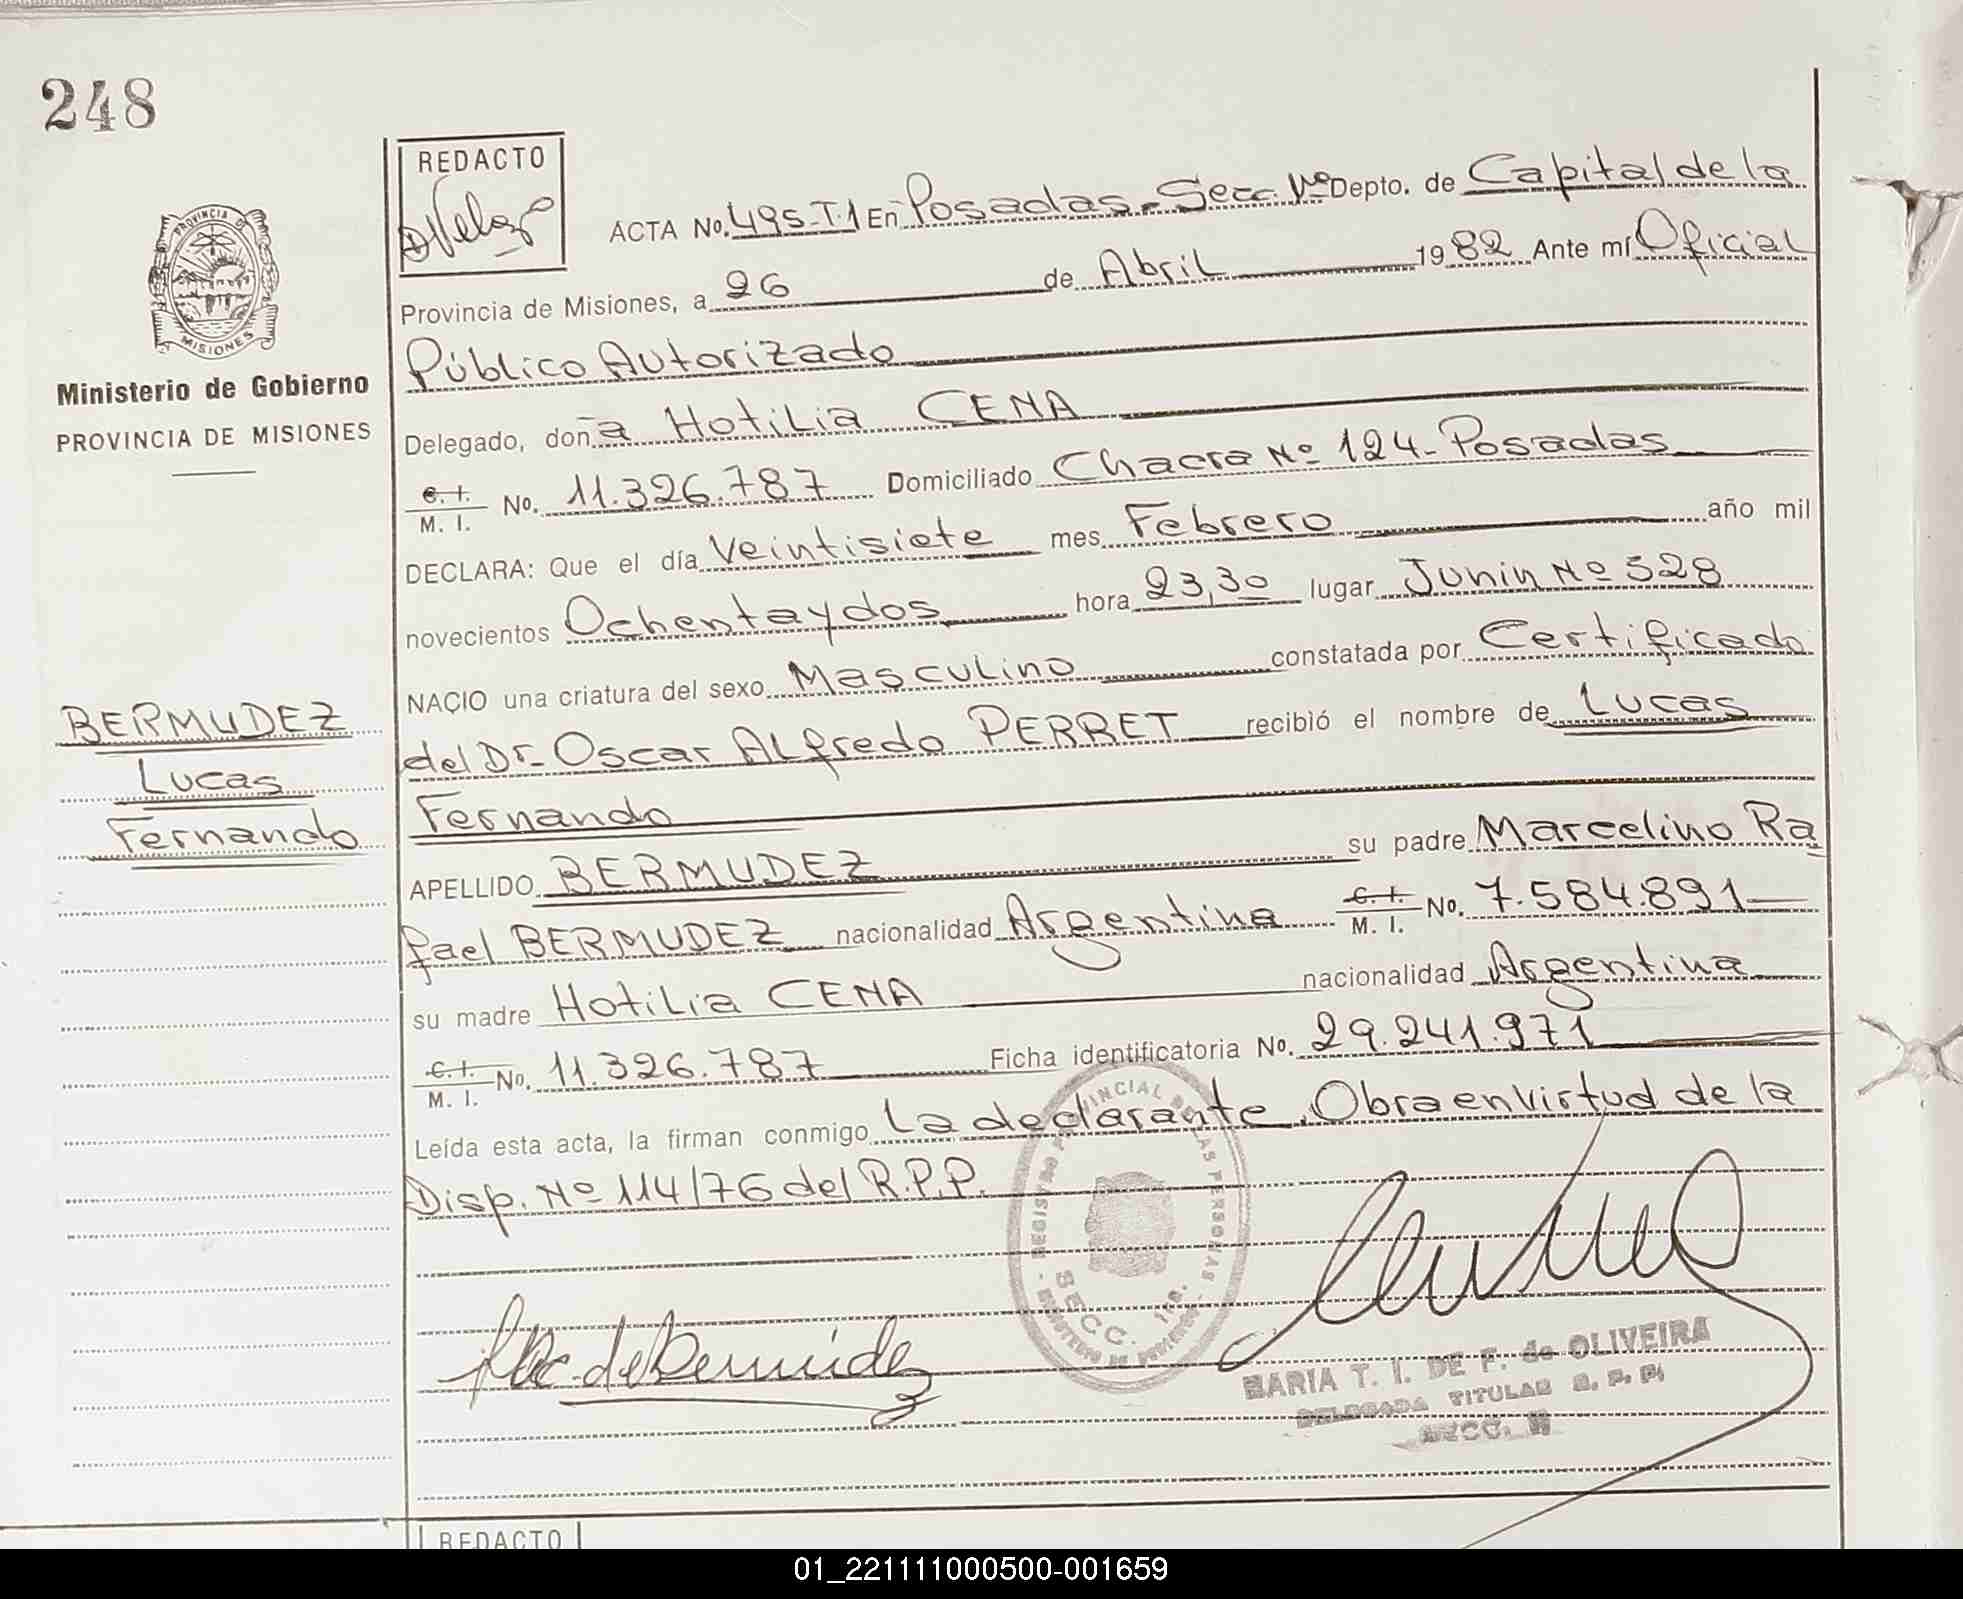 248
REDACTO
ACTA No. 495-T.1 En Posadas - Secc. 1ª Depto. de Capital de la
Provincia de Misiones, a 26 de Abril 1982 Ante mí Oficial
Público Autorizado
Delegado, don a Hotilia CENA
C. I. / M. I. No. 11.326.787 Domiciliado Chacra Nº 124- Posadas
DECLARA: Que el día Veintisiete mes Febrero año mil
novecientos Ochenta y dos hora 23,30 lugar Junin Nº 528
NACIO una criatura del sexo Masculino constatada por Certificado
del Dr. Oscar Alfredo PERRET recibió el nombre de Lucas
Fernando
APELLIDO BERMUDEZ su padre Marcelino Ra
fael BERMUDEZ nacionalidad Argentina C. I. / M. I. No. 7.584.891
su madre Hotilia CENA nacionalidad Argentina
C. I. / M. I. No. 11.326.787 Ficha identificatoria No. 29.241.971
Leída esta acta, la firman conmigo La declarante. Obra en virtud de la
Disp. Nº 114/76 del R.P.P.
PROVINCIA DE MISIONES
Ministerio de Gobierno
PROVINCIA DE MISIONES
BERMUDEZ
Lucas
Fernando
REGISTRO PROVINCIAL DE LAS PERSONAS
SECC. 1ra.
de Bermúdez
MARIA T. I. DE F. de OLIVEIRA
DELEGADA TITULAR R. P. P.
SECC.
REDACTO
01_221111000500-001659